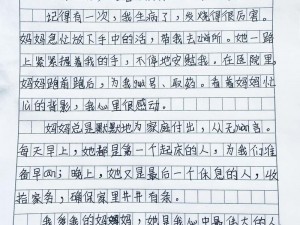 记得有一次，我生病了，发烧得很厉害。
妈妈急忙放下手中的活，带我去zhěn所。她一路
上紧紧握着我的手，不停地安慰我。在医院里，
妈妈跑前跑后，为我挂号、取药。看着妈妈忙
lù的背影，我心里很感动。
妈妈总是默默地为家庭付出，从无怨言。
每天早上，她都是第一个起床的人，为我们准
备早cān；晚上，她又是最后一个休息的人，收
拾家务，确保家里井井有条。
我爱我的妈妈，她是我心中最伟大的人